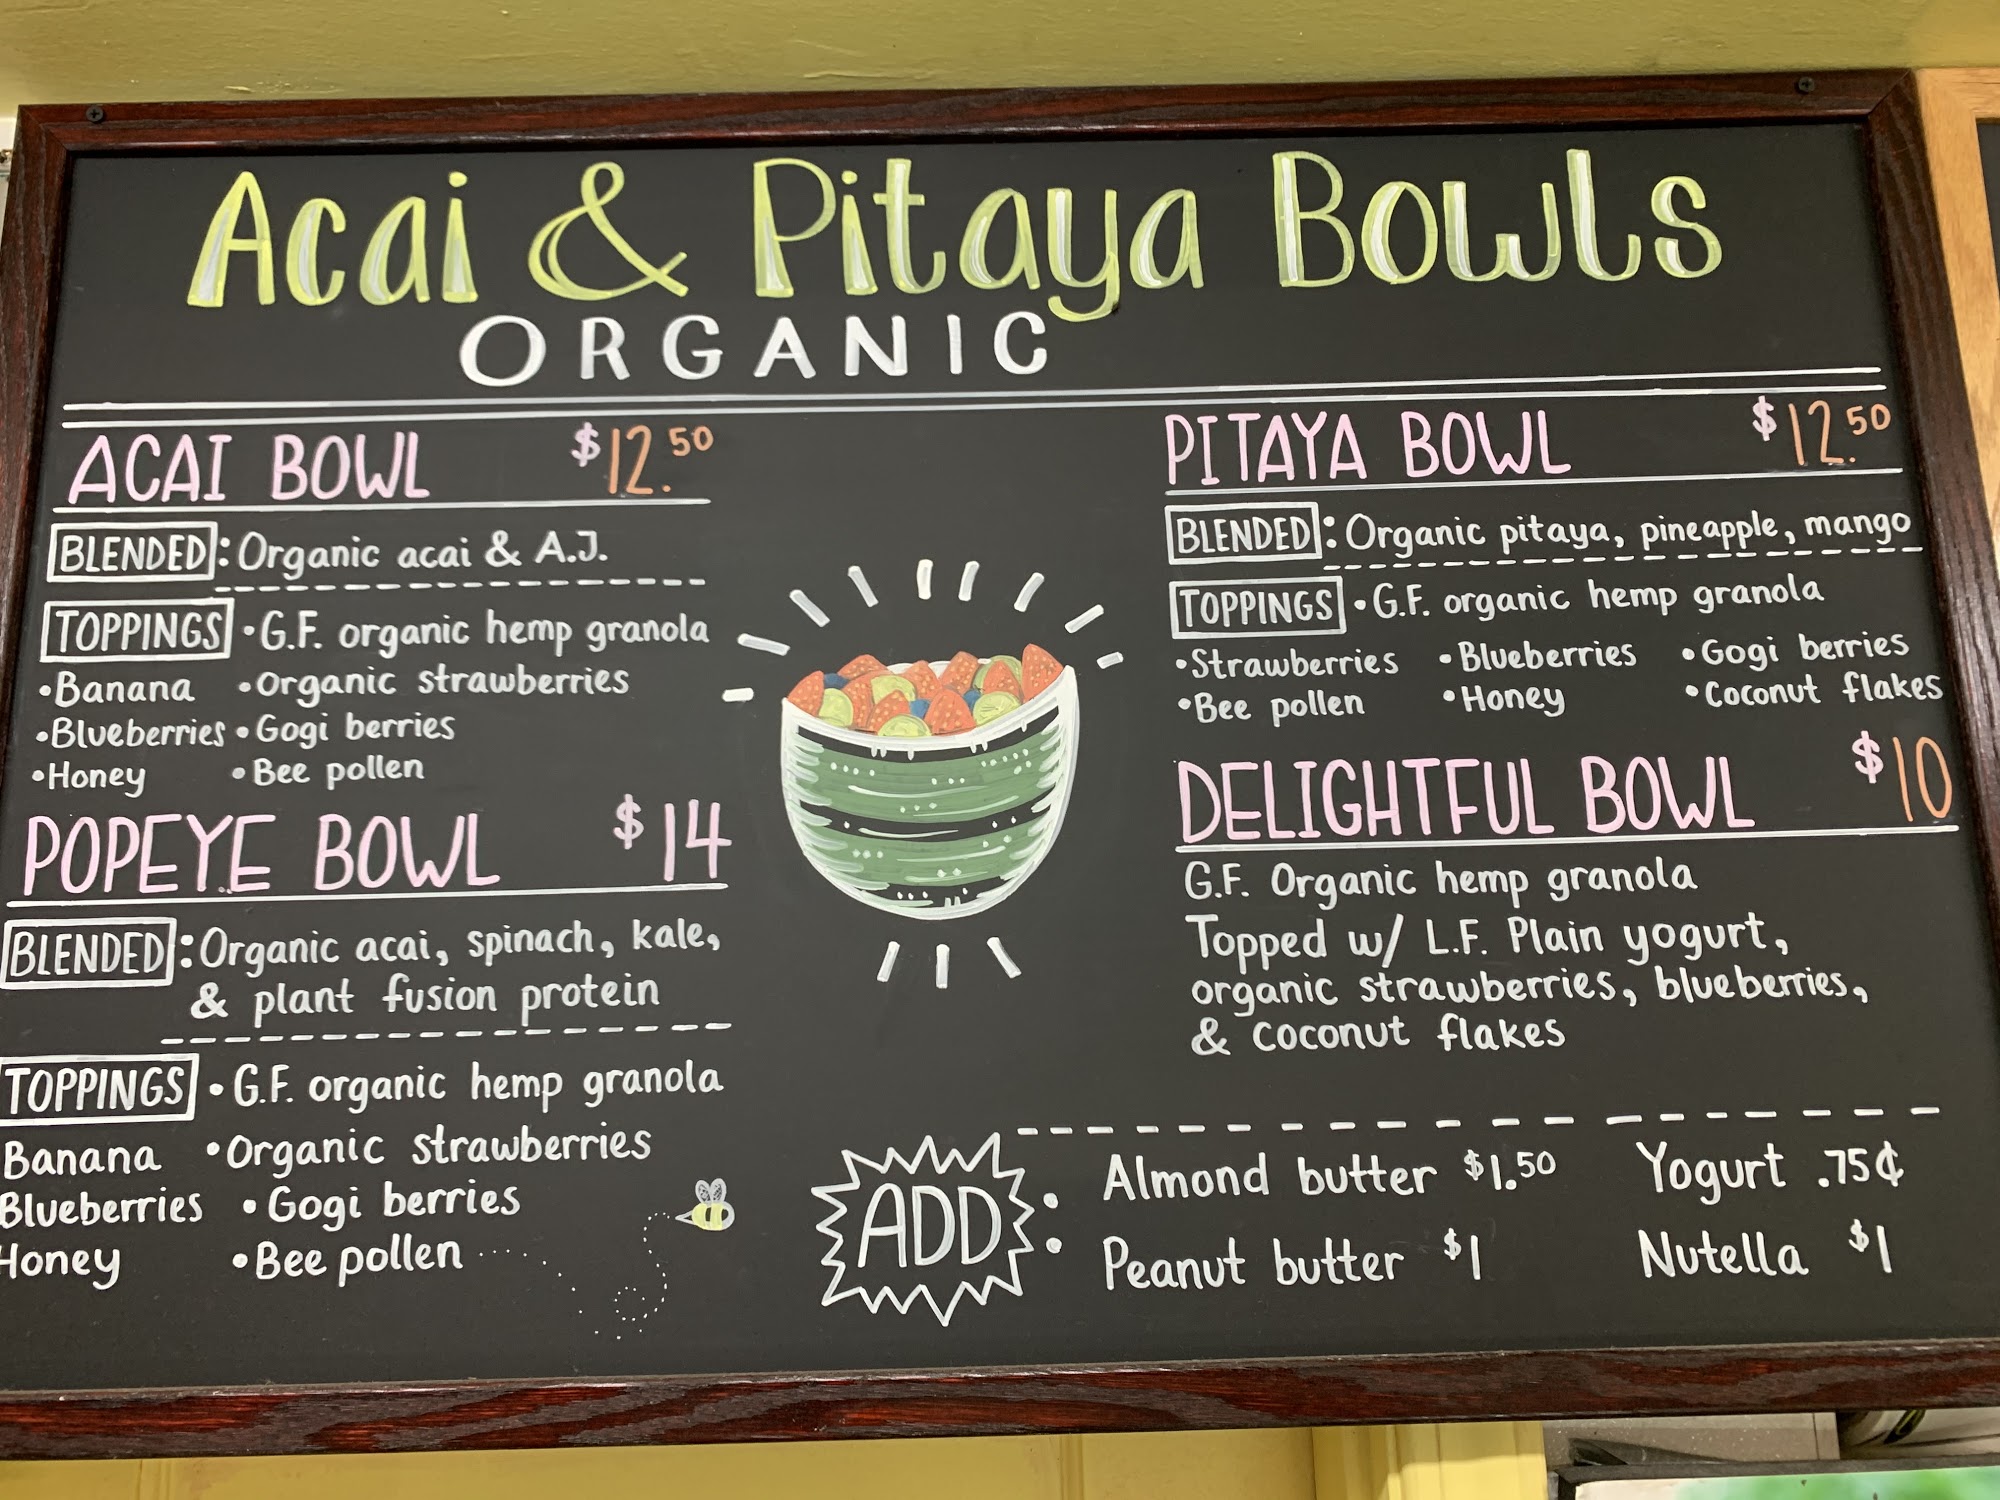 Acai & Pitaya Bowls
ORGANIC
ACAI BOWL $12.50
BLENDED: Organic acai & A.J.
TOPPINGS •G.F. organic hemp granola
•Banana •Organic strawberries
•Blueberries •Gogi berries
•Honey •Bee pollen
POPEYE BOWL $14
BLENDED: Organic acai, spinach, kale,
& plant fusion protein
TOPPINGS •G.F. organic hemp granola
Banana •Organic strawberries
Blueberries •Gogi berries
Honey •Bee pollen
PITAYA BOWL $12.50
BLENDED: Organic pitaya, pineapple, mango
TOPPINGS •G.F. organic hemp granola
•Strawberries •Blueberries •Gogi berries
•Bee pollen •Honey •Coconut flakes
DELIGHTFUL BOWL $10
G.F. Organic hemp granola
Topped w/ L.F. Plain yogurt,
organic strawberries, blueberries,
& coconut flakes
ADD: Almond butter $1.50 Yogurt .75¢
Peanut butter $1 Nutella $1